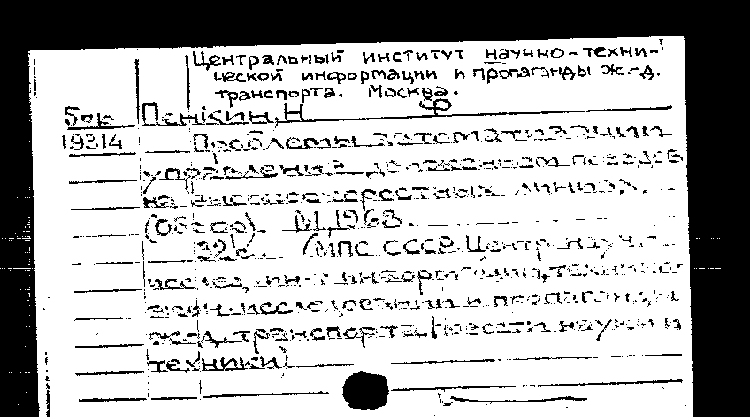 Центральный институт научно-техни-
ческой информации и пропаганды ж.-д.
транспорта. Москва.
Бок Пенкин, Н Ф
19314 Проблемы автоматизации
управления движением поездов
на высокоскоростных линиях.
(Обзор). М, 1968.
32 с. (МПС СССР. Центр. науч.-
исслед. ин-т информации, технико-
исследований и пропаганды
ж.-д. транспорта. Новости науки и
техники)